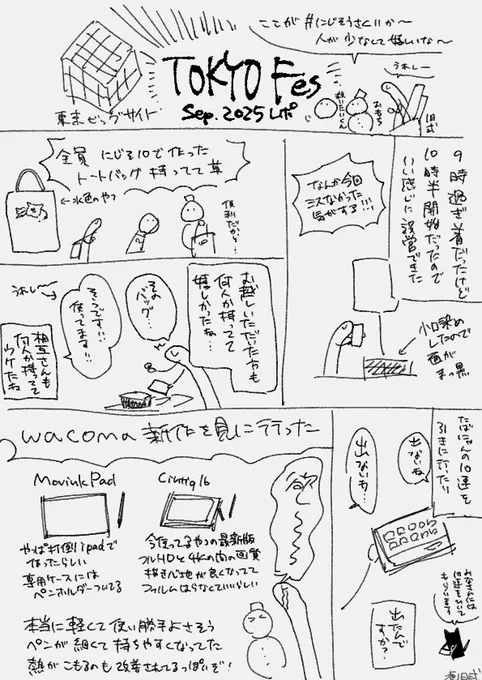 ここが#にじそうさくいか〜
人が少なくて嬉しいな〜
TOKYO Fes
Sep.2025レポ
東京ビッグサイト
うれしー
おもち
旧式
9時過ぎ着だったけど
10時半開始だったので
いい感じに設営できた
なんか今回
ミスなかった
気がする!!!
小口染め
したので
面が
まっ黒
全員 にじそう10で作った
トートバッグ 持ってて草
←水色のやつ
便利だから…
お越しいただいた方も
何人か持ってて
嬉しかったね…
その
バッグ…
そうです!!
使ってます!!
うれしー
相互さんも
何人か持ってて
ウケたね
たばにゃんの10連を
引きに行ったり
出ないね
出ないわ…
みなさんには
10連を引いて
もらいます
出たんで
すか?
wacoma 新作を見に行った
MovinkPad
やっぱ打倒ipadで
作ったらしい
専用ケースには
ペンホルダーついてる
Cintiq16
今使ってるやつの最新版
フルHDと4Kの間の画質
描きべ地が良くなってて
フィルムはらなくていいらしい
本当に軽くて使い勝手よさそう
ペンが細くて持ちやすくなってた
熱がこもるのも改善されてるっぽいぞ!